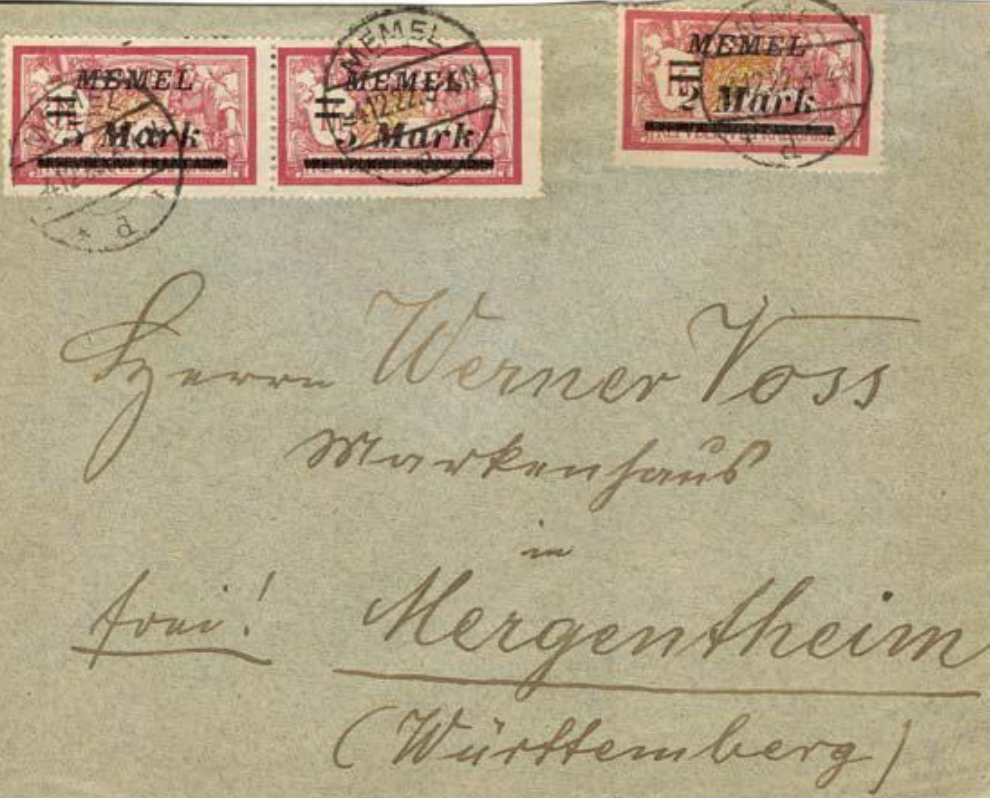 MEMEL
5 Mark
MEMEL
5 Mark
MEMEL
2 Mark
MEMEL
MEMEL
d
d
Herrn Werner Voss
Markenhaus
in
frei! Mergentheim
(Württemberg)